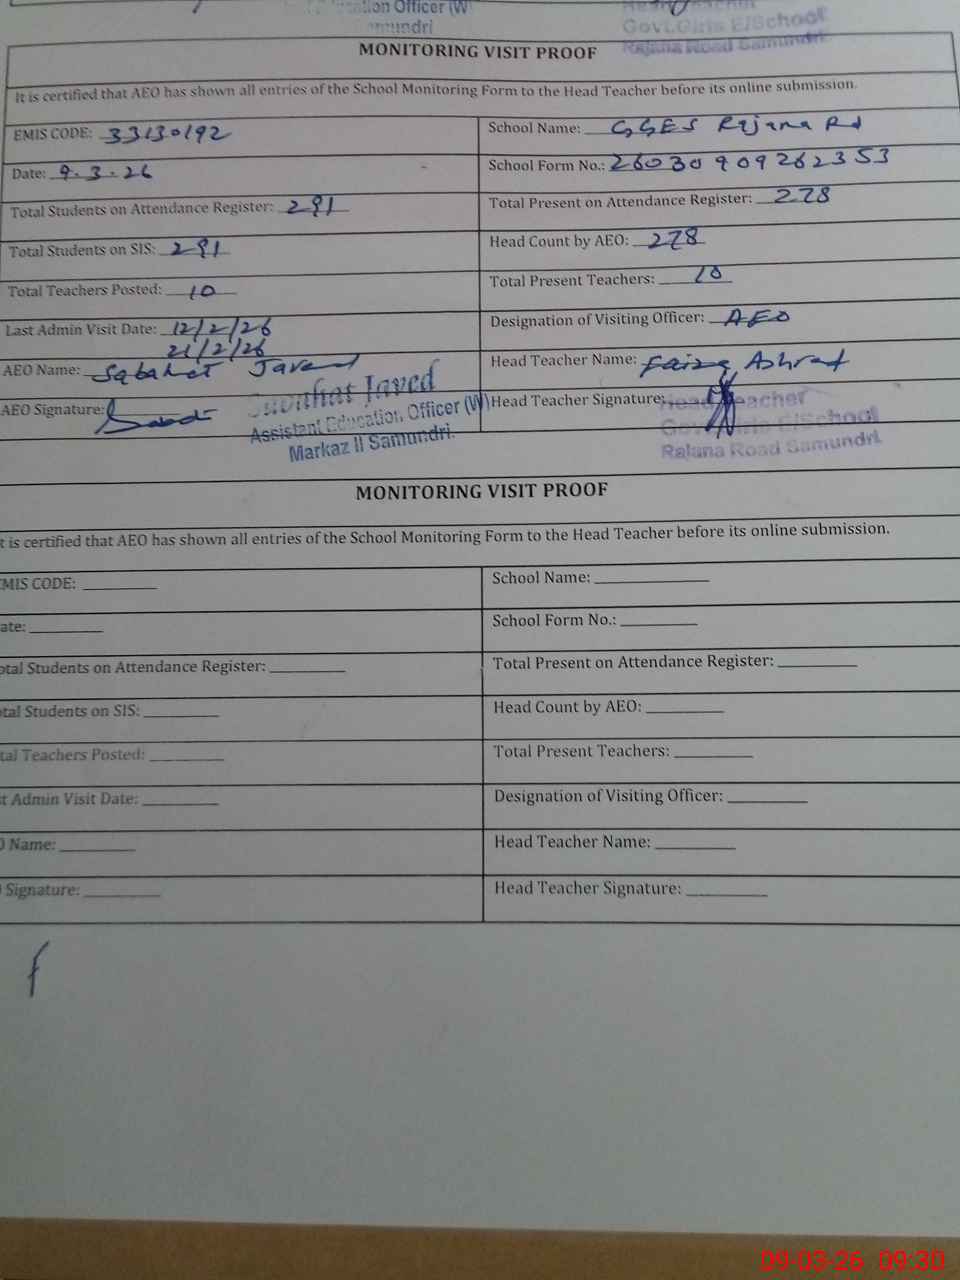 Officer (W
Samundri
Govt.Girls E/School
Rajana Road Samundri
MONITORING VISIT PROOF
It is certified that AEO has shown all entries of the School Monitoring Form to the Head Teacher before its online submission.
EMIS CODE: 33130192
School Name: GGES Rajana Rd
Date: 9.3.26
School Form No.: 2603090926 2353
Total Students on Attendance Register: 291
Total Present on Attendance Register: 278
Total Students on SIS: 291
Head Count by AEO: 278
Total Teachers Posted: 10
Total Present Teachers: 10
Last Admin Visit Date: 12/2/26
21/2/26
Designation of Visiting Officer: AEO
AEO Name: Sabahat Javed
Head Teacher Name: Faiza Ashraf
AEO Signature:
Sabahat Javed
Assistant Education Officer (W)
Markaz II Samundri.
Head Teacher Signature:
Head Teacher
Govt.Girls E/School
Rajana Road Samundri.
MONITORING VISIT PROOF
t is certified that AEO has shown all entries of the School Monitoring Form to the Head Teacher before its online submission.
EMIS CODE:
School Name:
ate:
School Form No.:
otal Students on Attendance Register:
Total Present on Attendance Register:
otal Students on SIS:
Head Count by AEO:
tal Teachers Posted:
Total Present Teachers:
t Admin Visit Date:
Designation of Visiting Officer:
O Name:
Head Teacher Name:
Signature:
Head Teacher Signature:
09-03-26 09:30